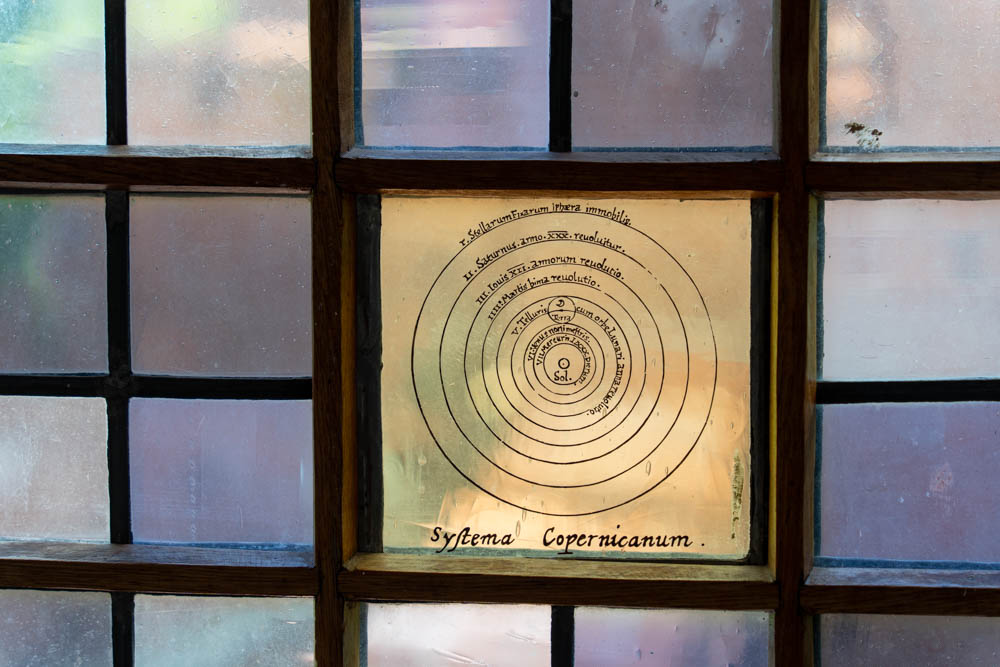 I. Stellarum Fixarum sphæra immobilis.
II. Saturnus. anno. XXX. reuoluitur.
III. Iouis XII. annorum reuolutio.
IIII. Martis bima reuolutio.
V. Telluris cum orbe Lunari anna reuolutio.
Terra
VI. Venus nonimeſtris.
VII. Mercurii LXXX dierum.
Sol.
Syſtema Copernicanum .